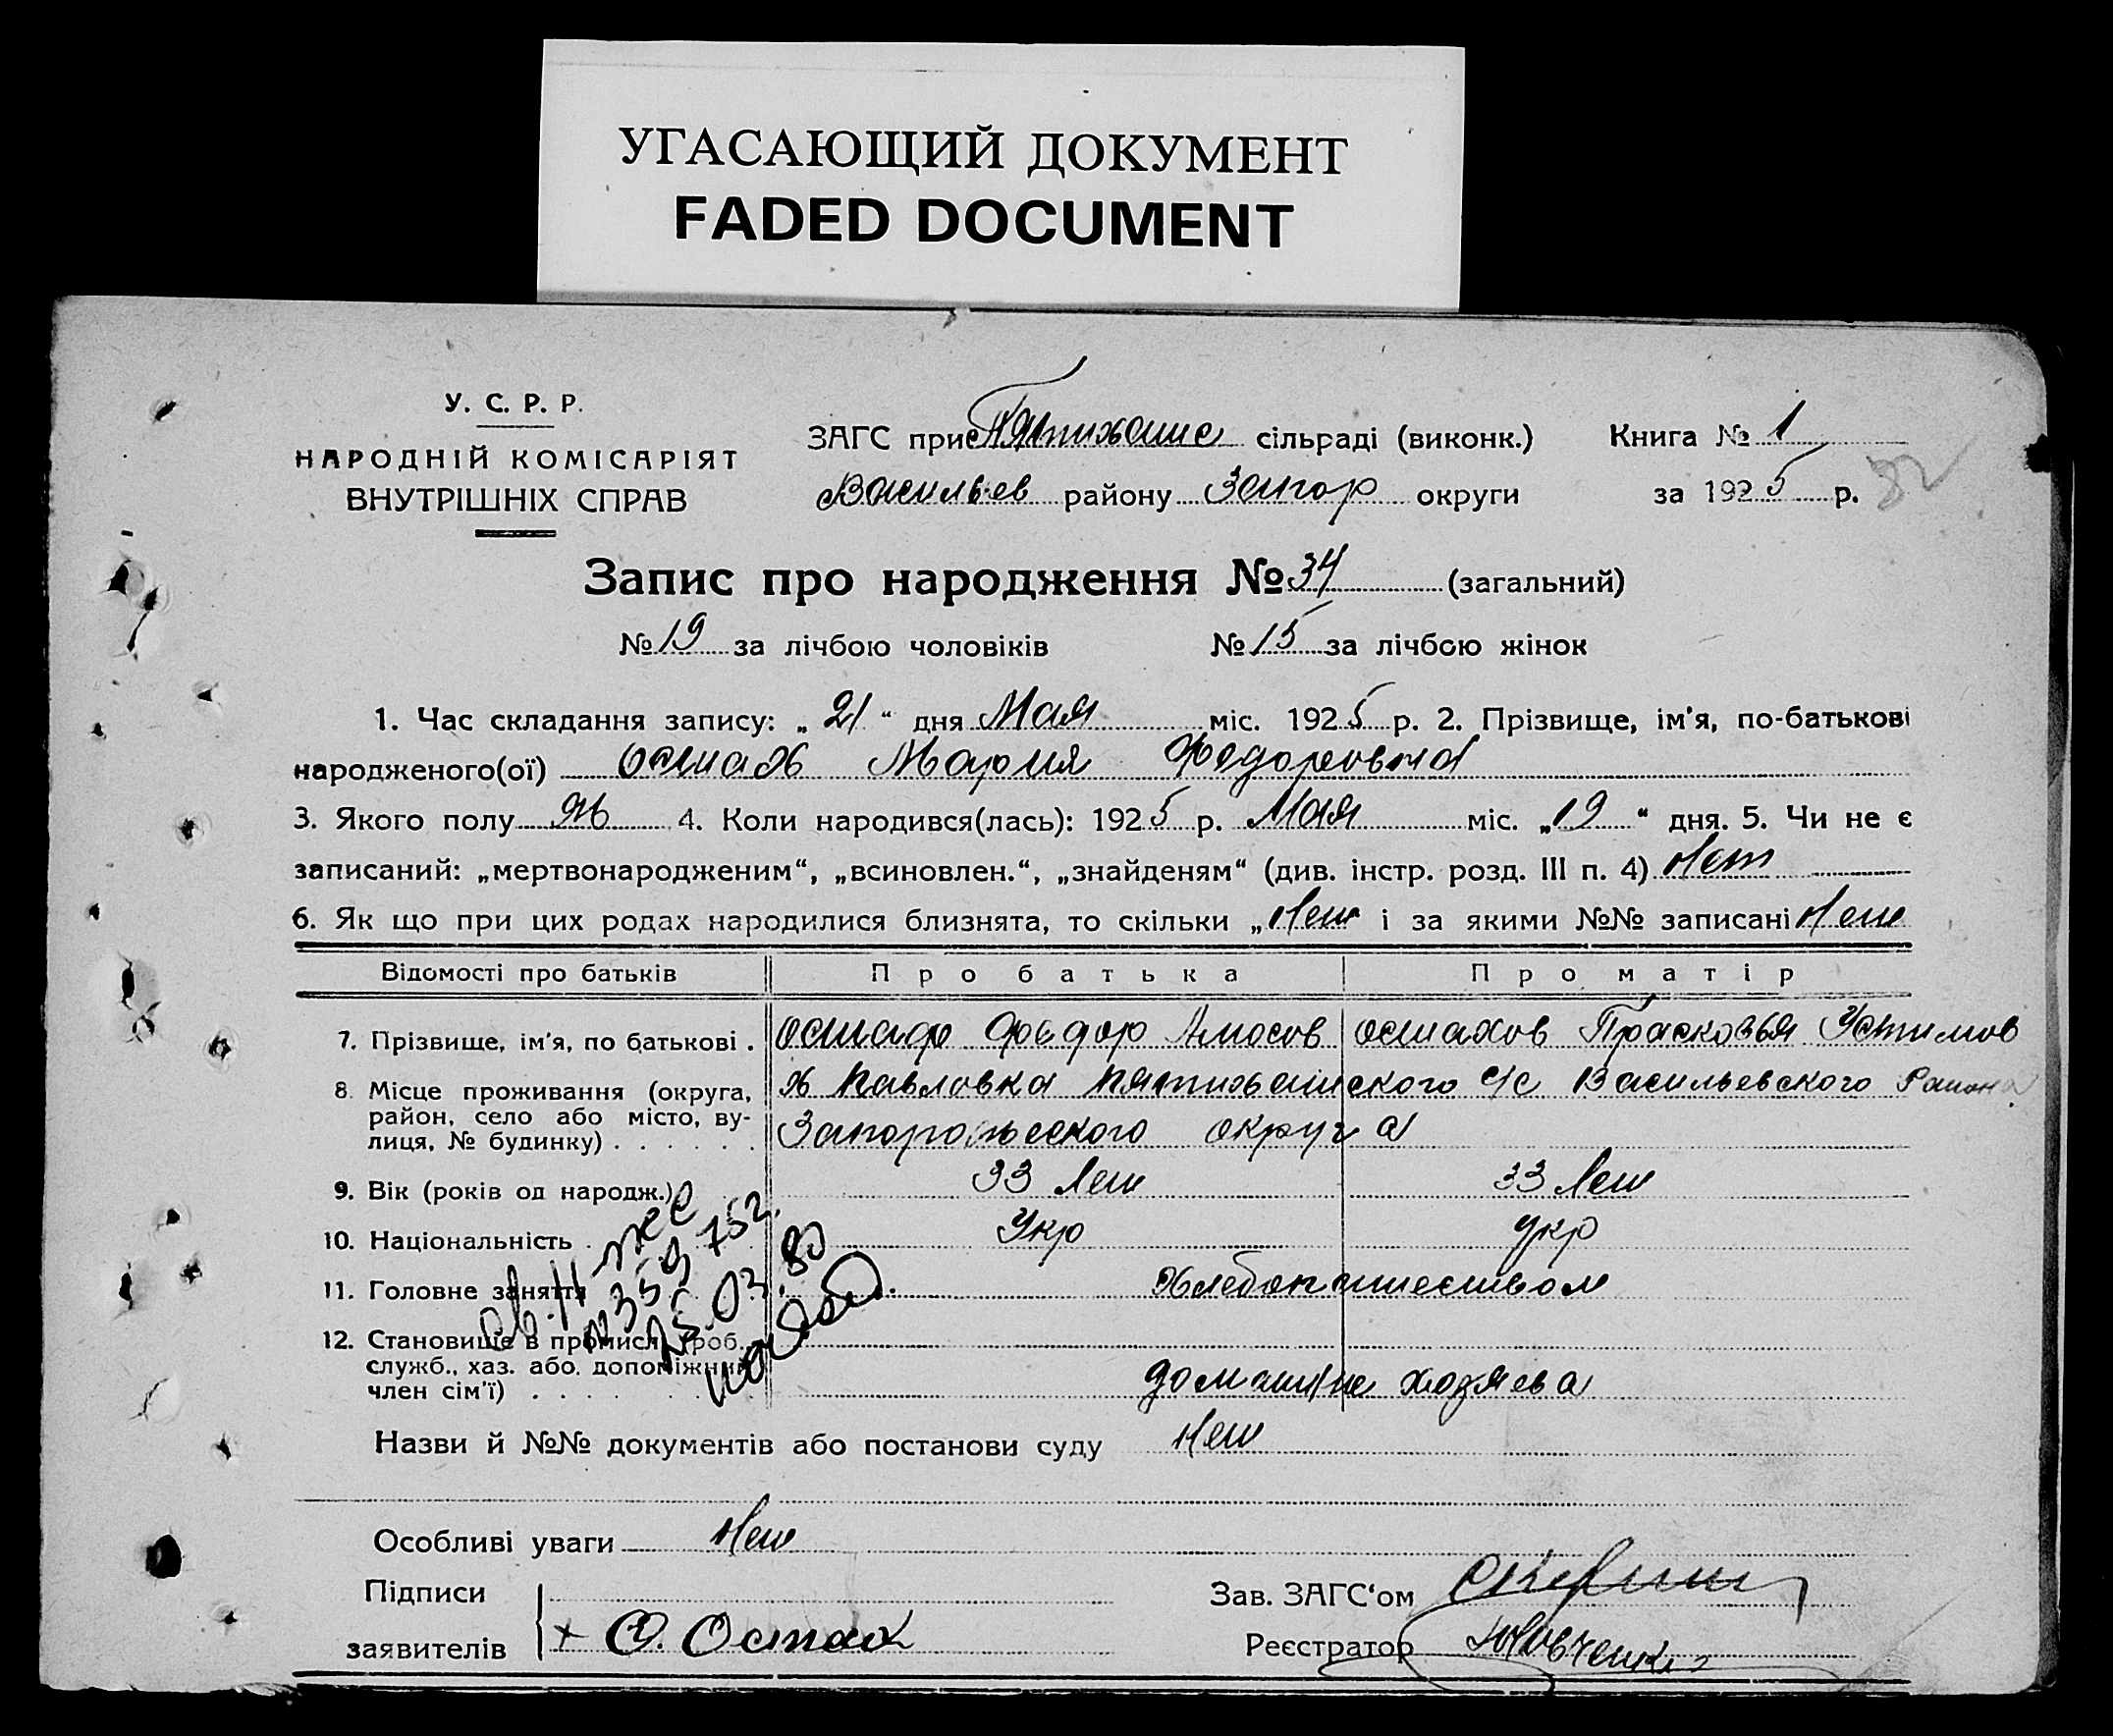 УГАСАЮЩИЙ ДОКУМЕНТ
FADED DOCUMENT
У. С. Р. Р.
НАРОДНІЙ КОМІСАРІЯТ
ВНУТРІШНІХ СПРАВ
ЗАГС при Пятихатс сільраді (виконк.)
Васильев району Запор округи
Книга № 1
за 1925 р.
82
Запис про народження № 34 (загальний)
№ 19 за лічбою чоловіків № 15 за лічбою жінок
1. Час складання запису: „ 21 “ дня Мая міс. 1925 р. 2. Прізвище, ім'я, по-батькові
народженого(ої) Остах Мария Федоровна
3. Якого полу Ж 4. Коли народився(лась): 1925 р. Мая міс. „19“ дня. 5. Чи не є
записаний: „мертвонародженим“, „всиновлен.“, „знайденям“ (див. інстр. розд. III п. 4) Нет
6. Як що при цих родах народилися близнята, то скільки „Нет і за якими №№ записані Нет
Відомості про батьків Про батька Про матір
7. Прізвище, ім'я, по батькові . Остах Федор Амосов Остахов Прасковья Устимов
8. Місце проживання (округа, район, село або місто, вулиця, № будинку) . . . . . . Х Павловка Пятихатского с/с Васильевского Района
Запорожского округа
9. Вік (років од народж.) 33 Лет 33 Лет
10. Національність . Укр Укр
11. Головне заняття Хлебопашеством
12. Становище в промислі (роб., служб., хаз. або допоміжний член сім'ї) . . . домашне хозяева
№359752
25.03.80
Назви й №№ документів або постанови суду Нет
Особливі уваги Нет
Підписи
заявителів + Ф. Остах
Зав. ЗАГС'ом
Реєстратор